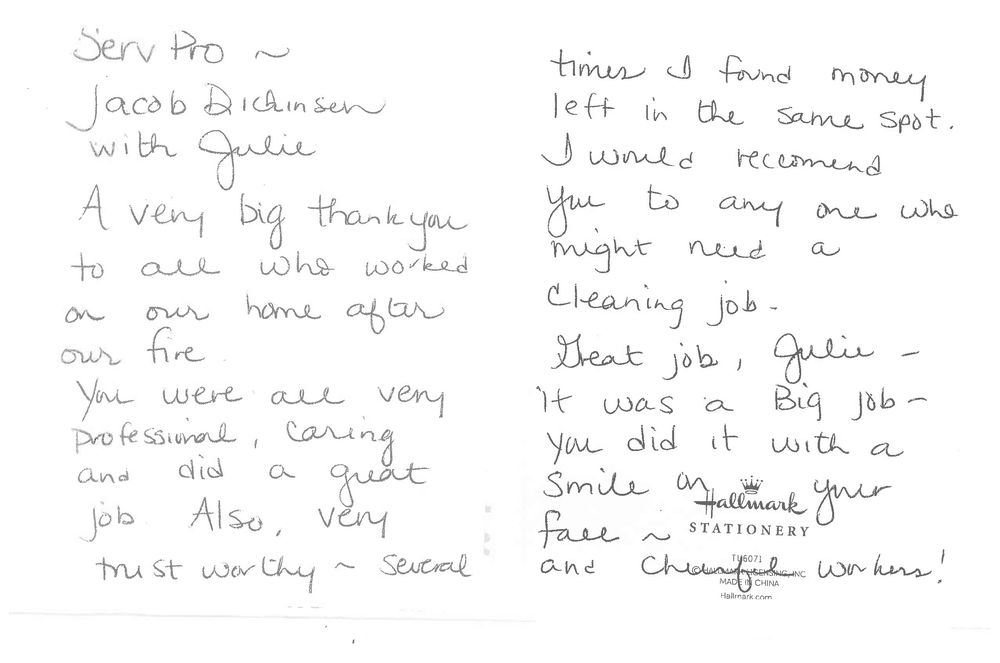 Serv Pro ~
Jacob Dickinsen
with Julie
A very big thank you
to all who worked
on our home after
our fire.
You were all very
professional, caring
and did a great
job. Also, very
trust worthy ~ several
times I found money
left in the same spot.
I would reccomend
you to any one who
might need a
cleaning job -
Great job, Julie -
it was a Big job -
you did it with a
smile on your
face ~
and cheerful workers!
Hallmark
STATIONERY
TU6071
MADE IN CHINA
Hallmark.com